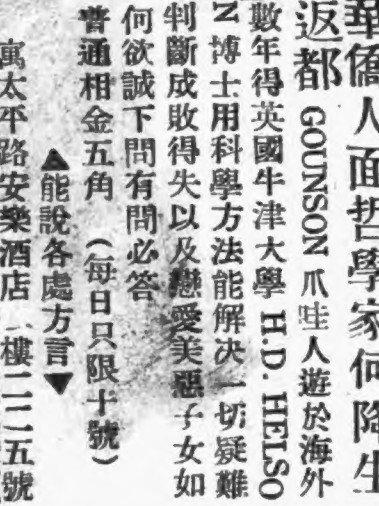 華僑人面哲學家何降生
返都 GOUNSON 爪哇人遊於海外
數年得英國牛津大學 H.D. HELSO
N 博士用科學方法能解决一切疑難
判斷成敗得失以及戀愛美惡子女如
何欲誠下問有問必答
普通相金五角 (每日只限十號)
▲能說各處方言▼
寓太平路安樂酒店 樓二二五號